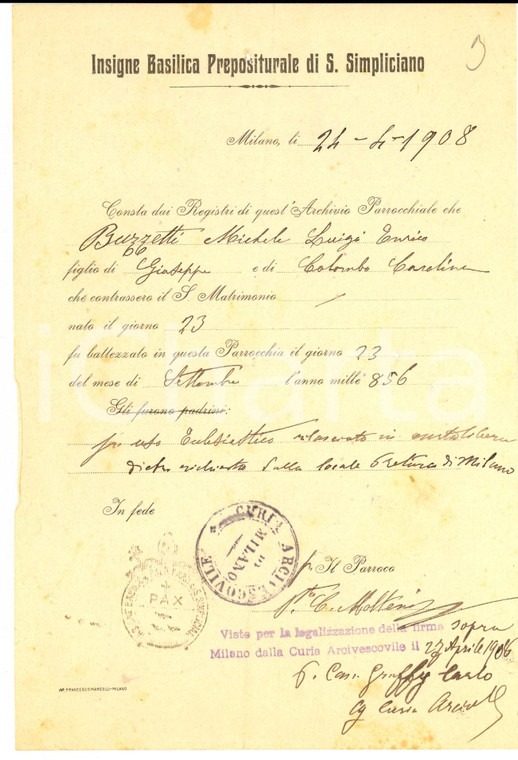 Insigne Basilica Prepositurale di S. Simpliciano
Milano, li 24-4-1908
Consta dai Registri di quest'Archivio Parrocchiale che
Buzzetti Michele Luigi Enrico
figlio di Giuseppe e di Colombo Carolina
che contrassero il S Matrimonio
nato il giorno 23
fu battezzato in questa Parrocchia il giorno 23
del mese di Settembre l'anno mille 856
Gli furono padrini:
per uso Ecclesiastico rilasciato in carta libera
dietro richiesta dalla locale Pretura di Milano
In fede
CURIA ARCIVESCOVILE
DI MILANO
PAX
p Il Parroco
C. Molteni
Visto per la legalizzazione della firma sopra
Milano dalla Curia Arcivescovile il 27 Aprile 1908
Carlo
Curia
MILANO